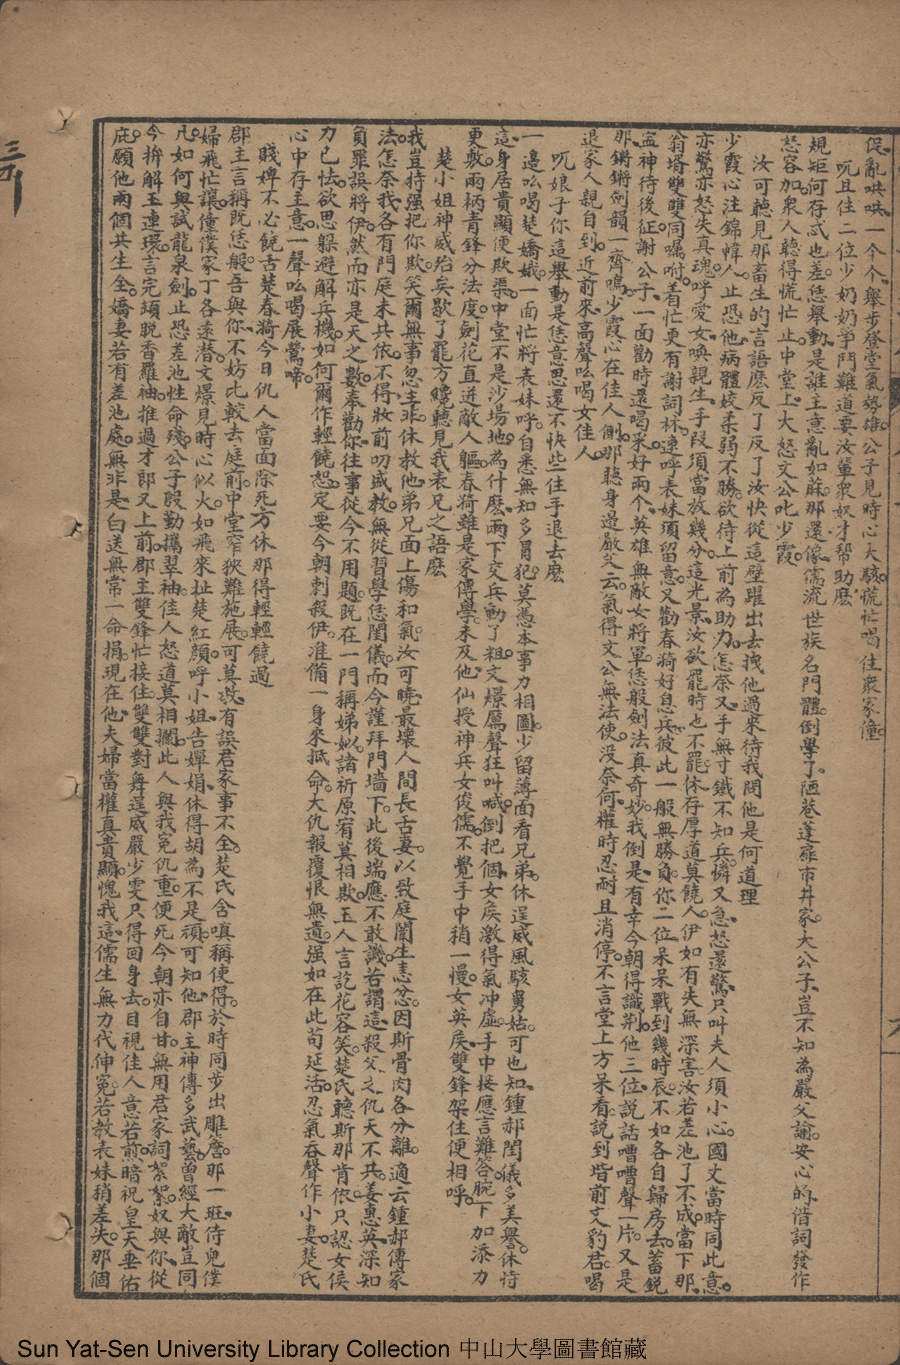 促亂哄哄一个个舉步登堂氣勢雄公子見時心大駭慌忙喝住衆家僮
吭且住二位少奶奶爭鬥難道要汝輩衆奴才帮助麽
規矩何存忒也差恁舉動是誰主意亂如蔴那還像儒流世族名門體倒學了陋巷蓬扉市井家大公子豈不知為嚴父諭安心的借詞發作
怒容加衆人聽得慌忙止中堂上大怒文公叱少霞
汝可聽見那畜生的言語麽反了反了汝快從這壁躍出去拽他過來待我問他是何道理
少霞心注錦幃人止恐他病體姣柔弱不勝欲待上前為助力怎奈又手無寸鐵不知兵憐又急怒還驚只叫夫人須小心國丈當時同此意
亦驚亦怒失真魂呼愛女喚親生手段須當放幾分這光景汝欲罷時也不罷休存厚道莫饒人伊如有失無深害汝若差池了不成當下那
翁壻雙雙同囑咐着忙更有謝詞林連呼表妹須留意又勸春猗好息兵彼此一般無勝負你二位呆呆戰到幾時辰不如各自歸房去蓄銳
孟神待後征謝公子一面勸時還喝采好兩个英雄無敵女將軍恁般劍法真奇妙我倒是有幸今朝得識荆他三位說話嘈嘈聲一片又是
那鏘鏘劍韻一齊鳴少霞心在佳人側那聽身邊嚴父云氣得文公無法使没奈何權時忍耐且消停不言堂上方呆看說到堦前文豹君喝
退家人親自到近前來高聲吆喝女佳人
吭娘子你這舉動是恁意思還不快些住手退去麽
一邊吆喝楚嬌娥一面忙將表妹呼自悉無知多冐犯莫憑本事力相圖少留薄面看兄弟休逞威風駭舅姑可也知鍾郝閨儀多美譽休恃
這身居貴顯便欺渠中堂不是沙場地為什麽兩下交兵動了粗文㬌厲聲狂叫喊倒把個女矦激得氣冲虛手中接應言難答腕下加添力
更數兩柄青鋒分法度劍花直近敵人軀春猗雖是家傳學未及他仙授神兵女俊儒不覺手中稍一慢女英矦雙鋒架住便相呼
楚小姐神威殆矣歇了罷方纔聽見我表兄之語麽
我豈持强把你欺笑爾無事忽主非休教他弟兄面上傷和氣汝可曉最壞人間長舌妻以致庭闈生恚忿因斯骨肉各分離適云鍾郝傳家
法怎奈我各有門庭未共依不得妝前叨盛教無從習學恁閨儀而今謹拜門墻下此後端應不敢譏若謂這殺父之仇天不共姜惠英深知
負罪誤將伊然而亦是天之數奉勸你往事從今不用題既在一門稱娣姒諸祈原宥莫相欺玉人言訖花容笑楚氏聽斯那肯依只認女侯
力已怯欲思躱避解兵機如何爾作輕饒恕定要今朝刺殺伊准備一身來抵命大仇報復恨無遺强如在此苟延活忍氣吞聲作小妻楚氏
心中存主意一聲吆喝展鶯啼
賤婢不必饒舌楚春猗今日仇人當面除死方休那得輕輕饒過
郡主言稱既恁般吾與你不妨比較去庭前中堂窄狹難施展可莫教有誤君家事不全楚氏含嗔稱使得於時同步出雕簷那一班侍兒僕
婦飛忙讓僮僕家丁各遠潛文㬌見時心似火如飛來扯楚紅顏呼小姐告嬋娟休得胡為不是頑可知他郡主神傳多武藝曾經大敵豈同
凡如何與試龍泉劍止恐差池性命殘公子殷勤攜翠袖佳人怒道莫相攔此人與我冤仇重便死今朝亦自甘無用君家詞絮絮奴與你從
今拚解玉連環言完頓脱香羅袖推過才郎又上前郡主雙鋒忙接住雙雙對舞逞威嚴少雯只得回身去目視佳人意若煎暗祝皇天垂佑
庇願他兩個共生全嬌妻若有差池處無非是白送無常一命捐現在他夫婦當權真貴顯愧我這儒生無力代伸冤若教表妹稍差失那個
Sun Yat-Sen University Library Collection 中山大學圖書館藏